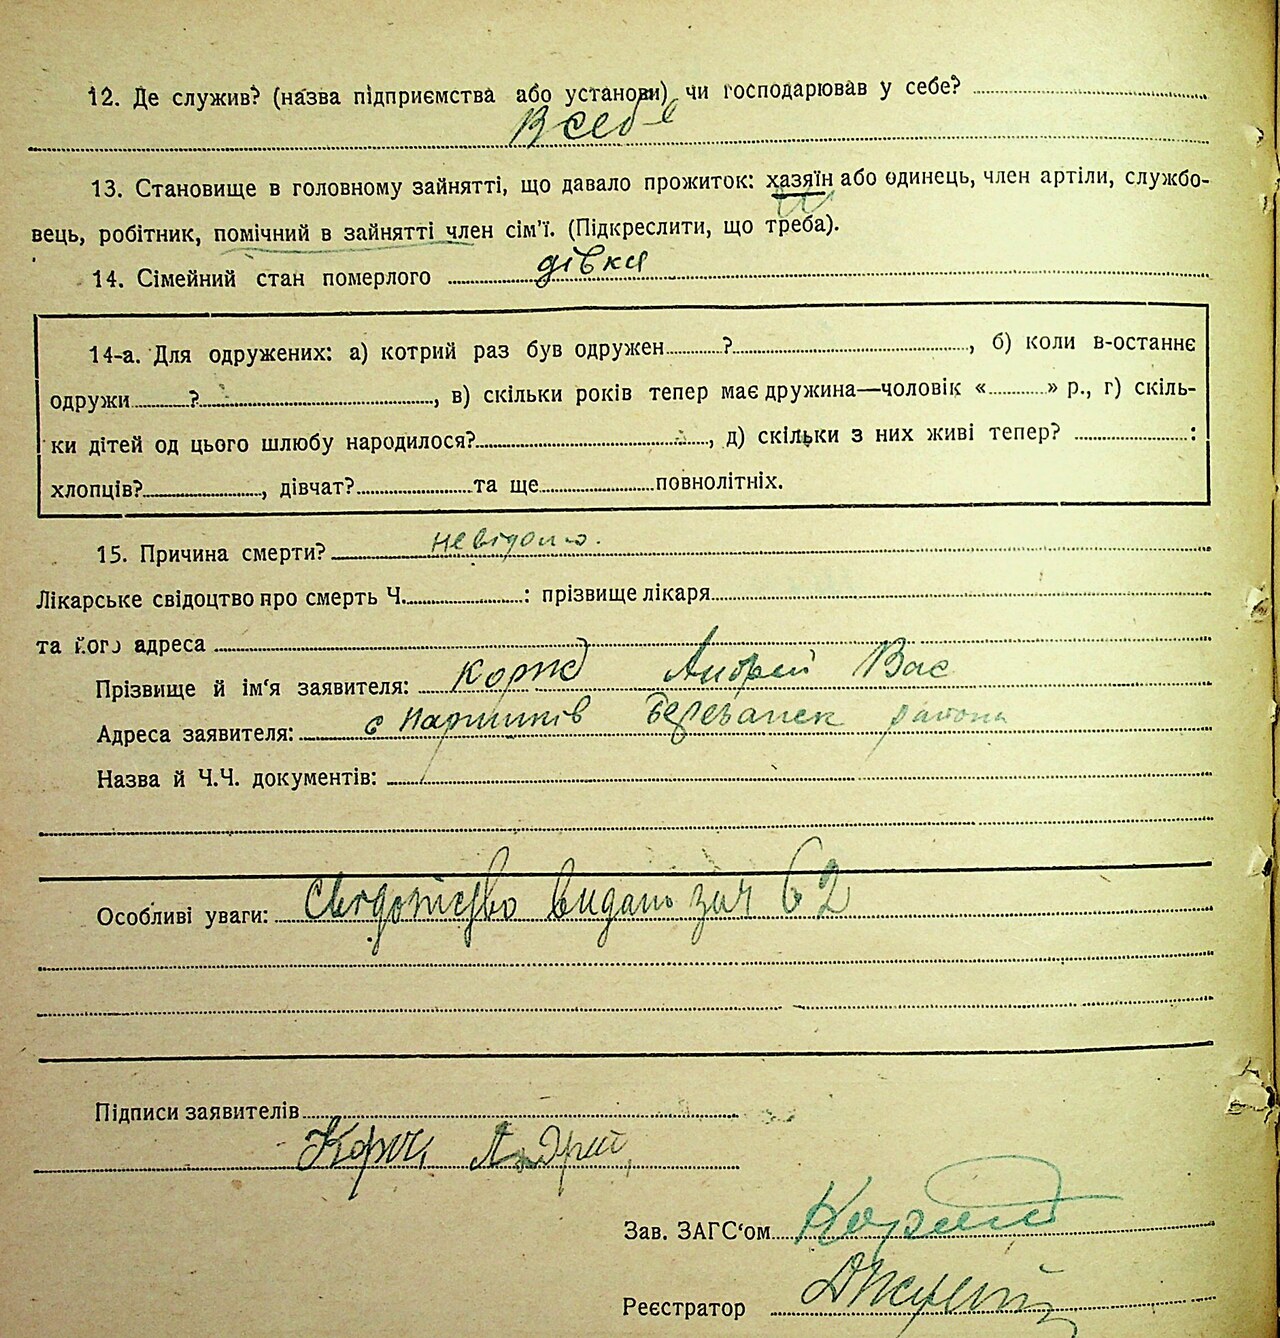 12. Де служив? (назва підприємства або установи) чи господарював у себе?
В себе
13. Становище в головному зайнятті, що давало прожиток: хазяїн або одинець, член артіли, службо-
вець, робітник, помічний в зайнятті член сім'ї. (Підкреслити, що треба).
14. Сімейний стан померлого дівка
14-а. Для одружених: а) котрий раз був одружен ? , б) коли в-останнє
одружи ? , в) скільки років тепер має дружина—чоловік « » р., г) скіль-
ки дітей од цього шлюбу народилося? , д) скільки з них живі тепер? :
хлопців? , дівчат? та ще повнолітніх.
15. Причина смерти? невідомо.
Лікарське свідоцтво про смерть Ч. : прізвище лікаря
та його адреса
Прізвище й ім'я заявителя: Корж Андрей Вас
Адреса заявителя: с Паришків Березанск района
Назва й Ч.Ч. документів:
Особливі уваги: Свідотство видано за № 62
Підписи заявителів
Корж Андрій
Зав. ЗАГС'ом
Реєстратор